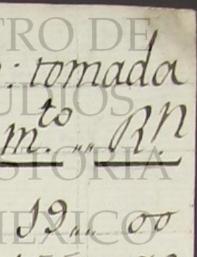 TRO DE
: tomada
UDIOS
m.to ,,,, R.n
STORIA
19 ,,,, 00
MEXICO